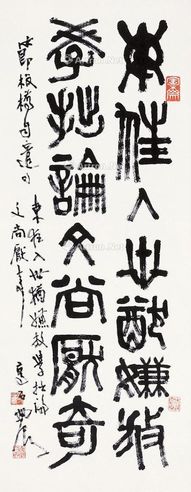 束狂入世猶嫌放
學拙論文尚厭奇
節板橋自遣句
束狂入世猶嫌放學拙論
文尚厭奇